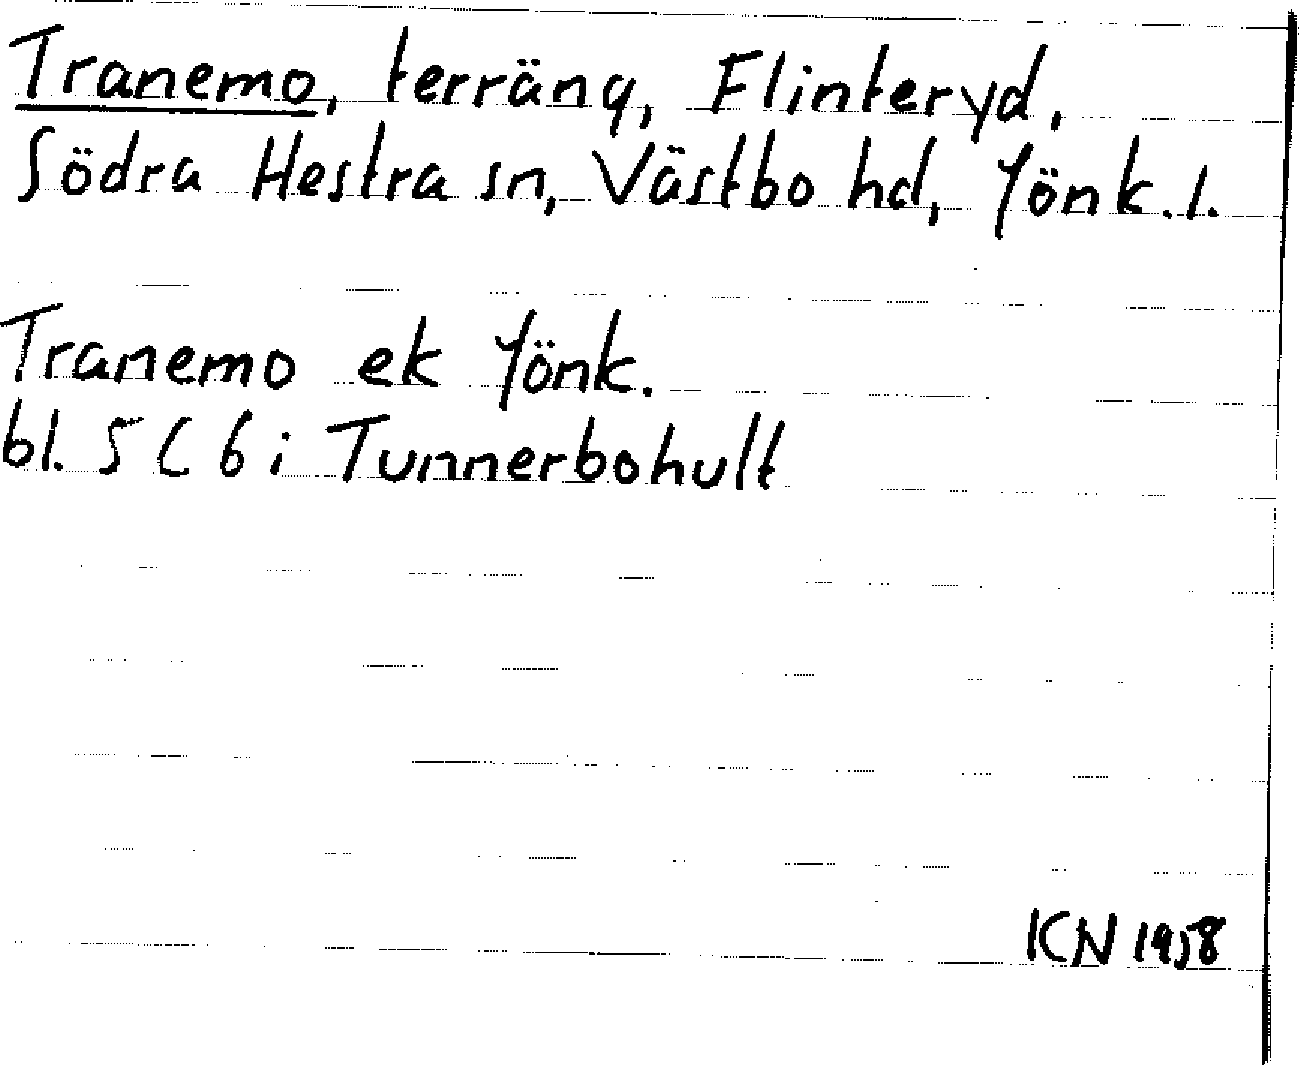 Tranemo, terräng, Flinteryd,
Södra Hestra sn, Västbo hd, Jönk. l.
Tranemo ek Jönk.
bl. 5 C 6 i Tunnerbohult
KN 1958